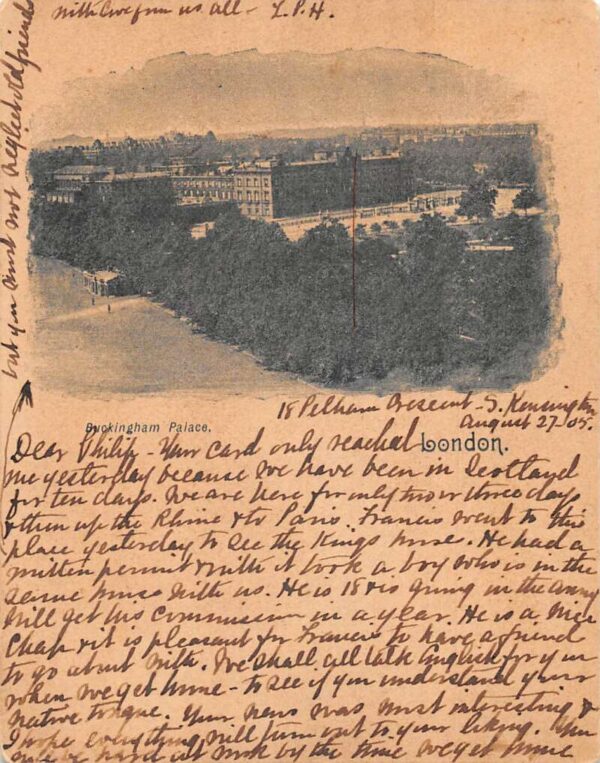 with love from us all - L.P.H.
but you must not neglect old friends
Buckingham Palace.
London.
18 Pelham Crescent - S. Kensington
August 27. 05.
Dear Philip - Your card only reached
me yesterday because we have been in Scotland
for ten days. We are here for only two or three days
& then up the Rhine & to Paris. Francis went to this
place yesterday to see the Kings horses. He had a
written permit & with it took a boy who is in the
same house with us. He is 18 & is going in the army
will get his commission in a year. He is a nice
chap & it is pleasant for Francis to have a friend
to go about with. We shall all talk English for you
when we get home - to see if you understand your
native tongue. Your news was most interesting &
I hope everything will turn out to your liking. You
will be hard at work by the time we get home